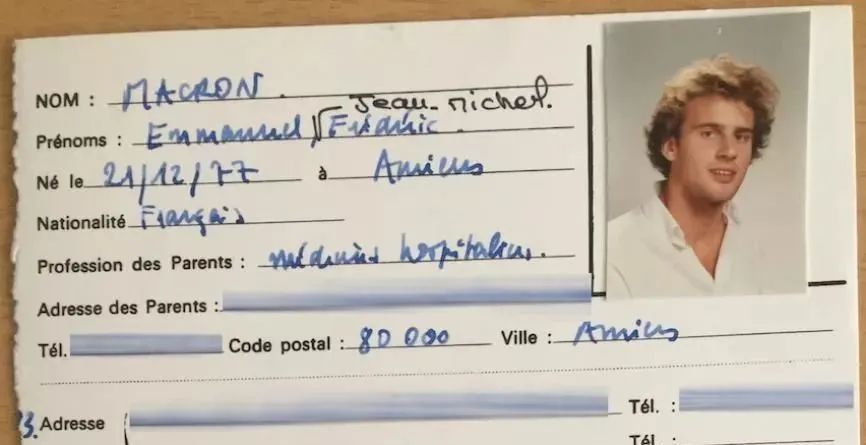 NOM : MACRON.
Jean-Michel.
Prénoms : Emmanuel √ Frédéric.
Né le 21/12/77 à Amiens
Nationalité Français
Profession des Parents : médecins hospitaliers.
Adresse des Parents :
Tél. Code postal : 80 000 Ville : Amiens
Adresse Tél. :
Tél :